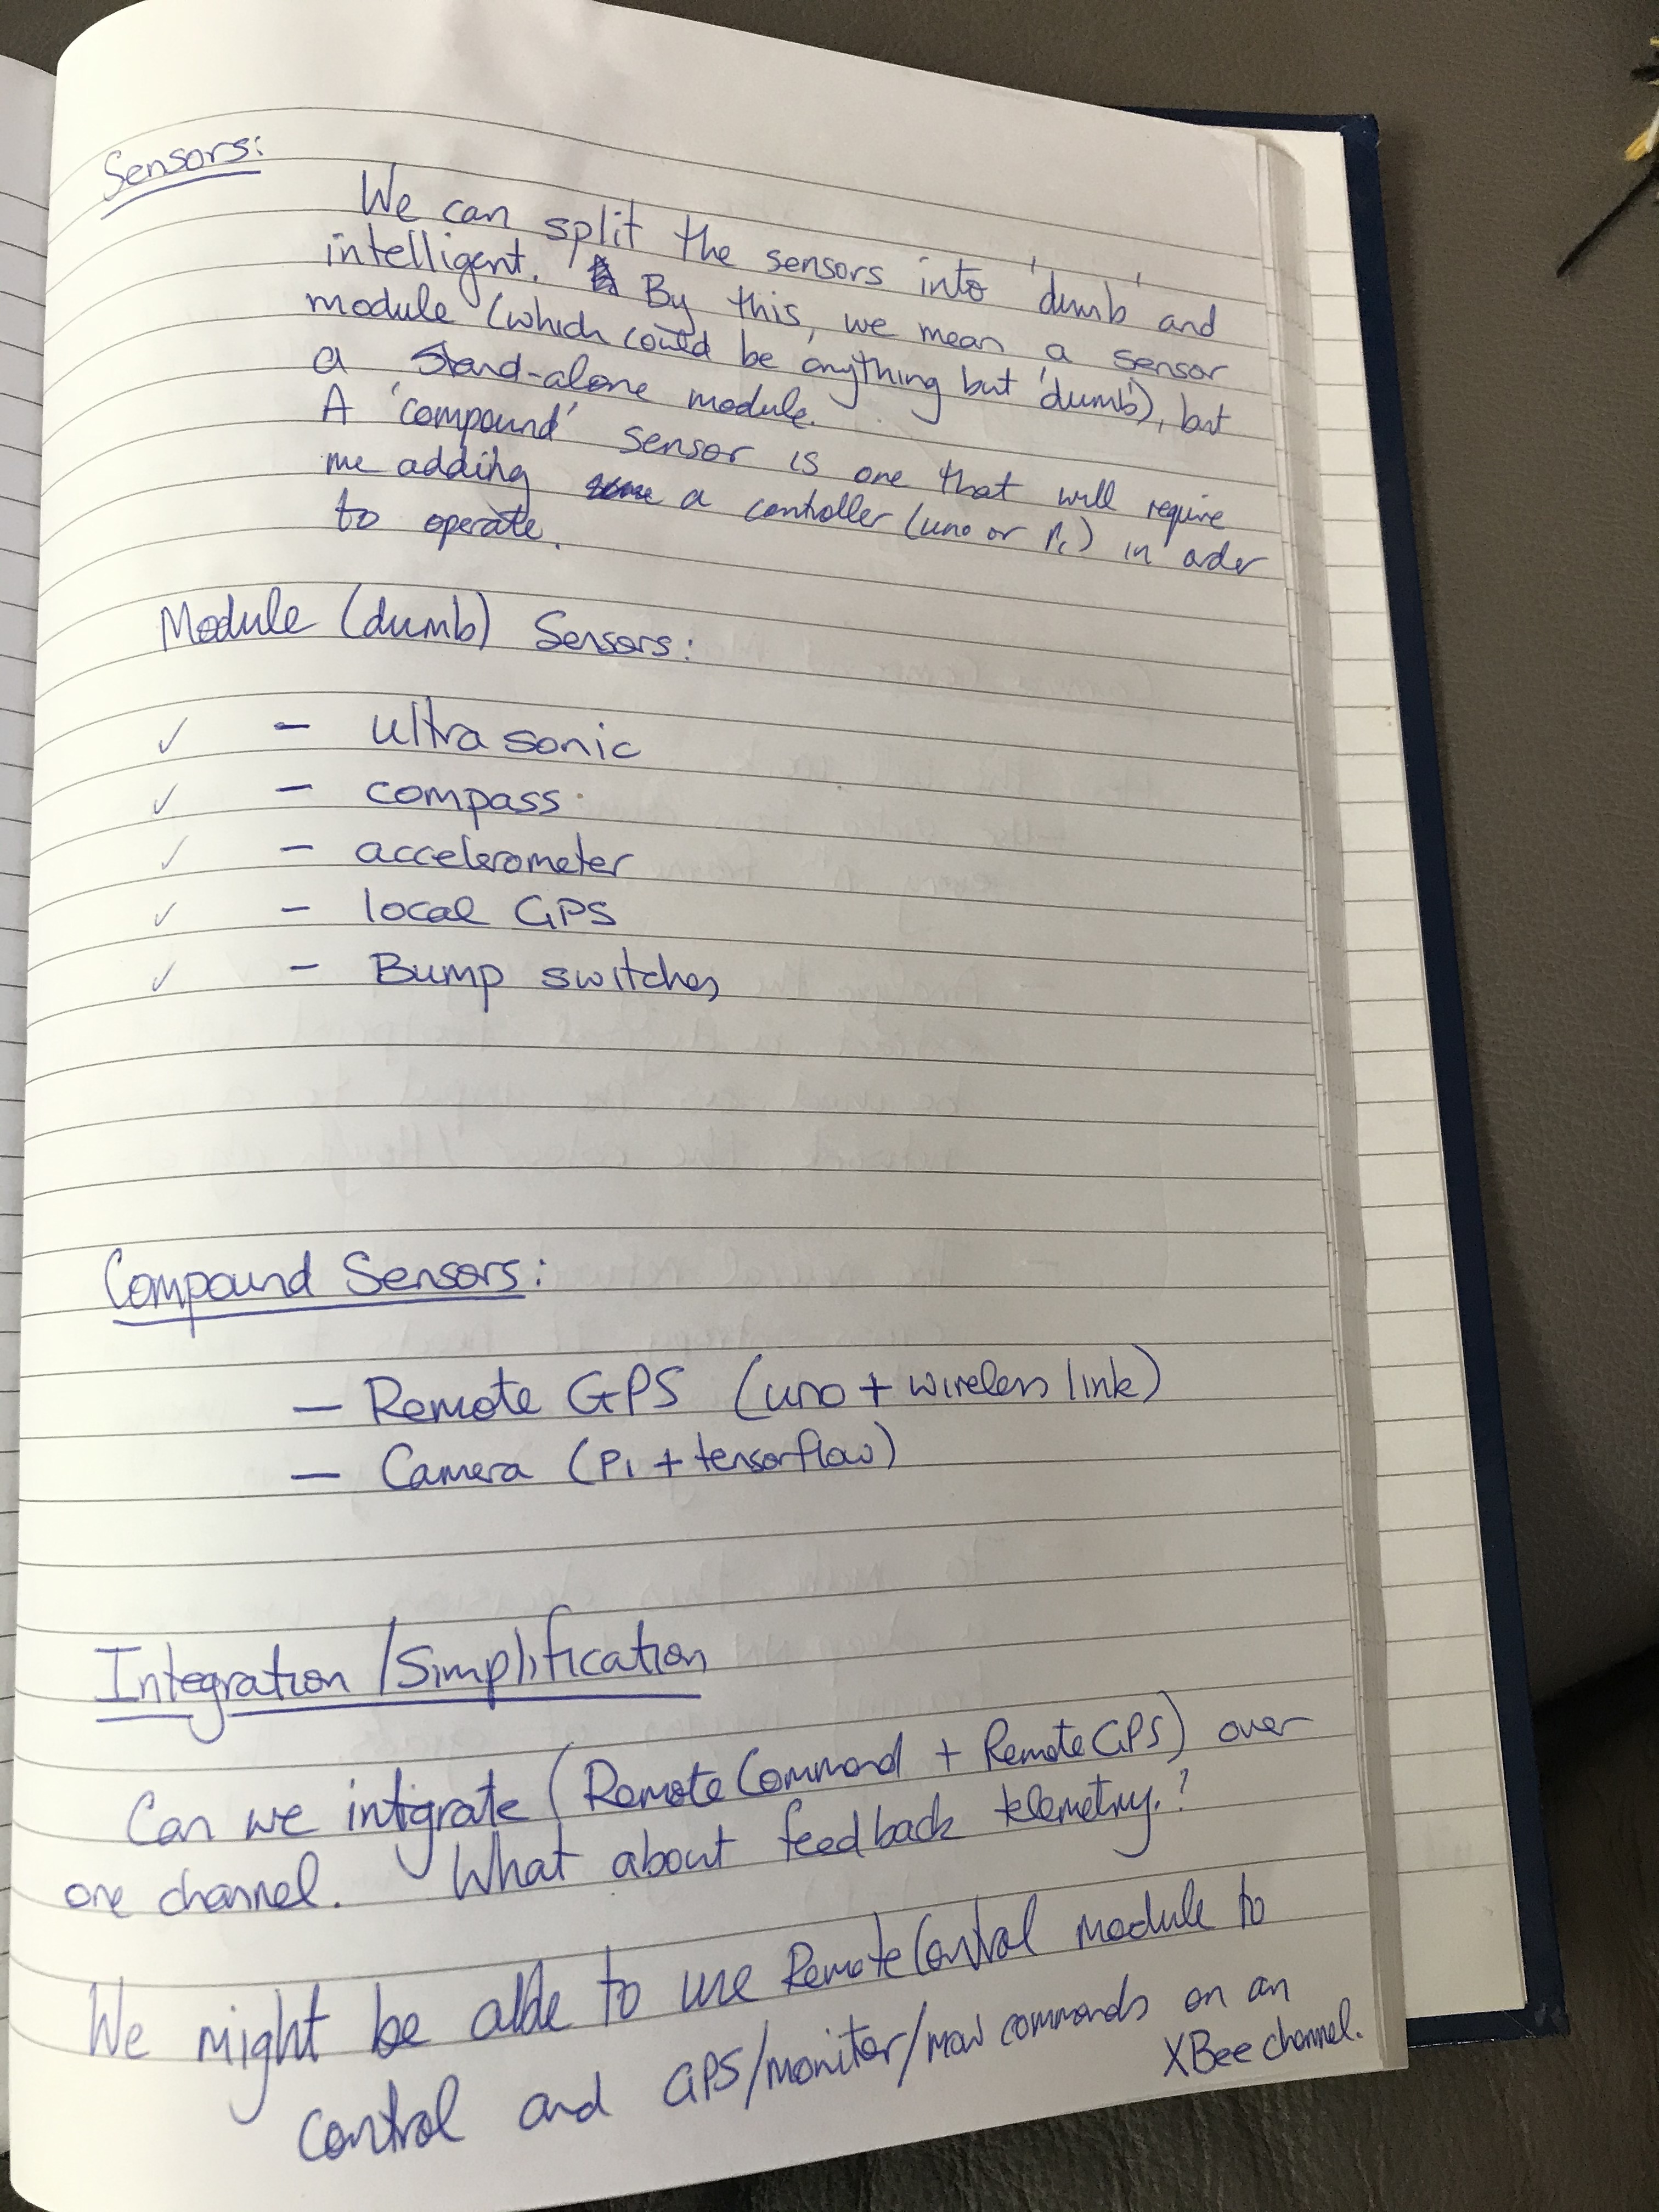 Sensors:
We can split the sensors into 'dumb' and
intelligent. By this, we mean a sensor
module (which could be anything but 'dumb'), but
a stand-alone module.
A 'compound' sensor is one that will require
me adding a controller (uno or Pi) in order
to operate.
Module (dumb) Sensors:
✓ - ultra sonic
✓ - compass
✓ - accelerometer
✓ - local GPS
✓ - Bump switches
Compound Sensors:
- Remote GPS (uno + wireless link)
- Camera (Pi + tensorflow)
Integration/Simplification
Can we intigrate (Remote Command + Remote GPS) over
one channel. What about feedback telemetry.?
We might be able to use Remote Control module to
control and GPS/moniter/mow commands on an
XBee channel.